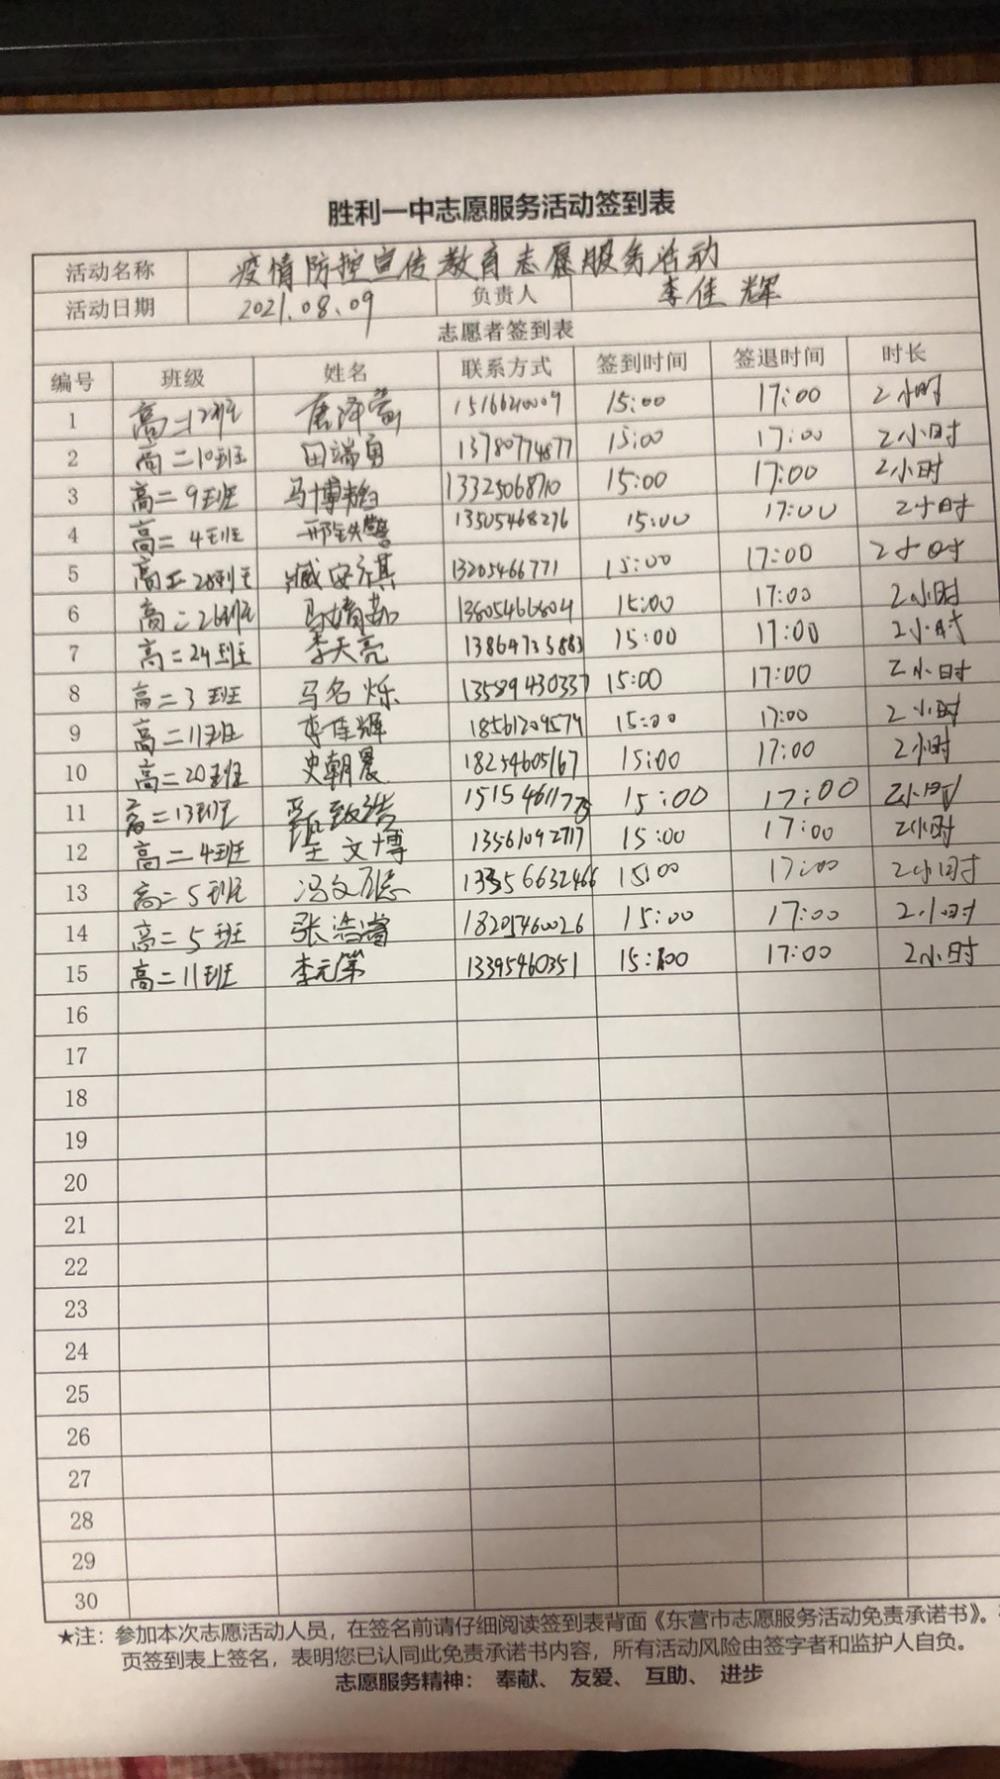 胜利一中志愿服务活动签到表
活动名称 疫情防控宣传教育志愿服务活动
活动日期 2021.08.09 负责人 李佳辉
志愿者签到表
编号 班级 姓名 联系方式 签到时间 签退时间 时长
1 高二12班 唐泽萱 15:00 17:00 2小时
2 高二10班 田端勇 13780774877 15:00 17:00 2小时
3 高二9班 马博韬 13325068710 15:00 17:00 2小时
4 高二4班 13505468276 15:00 17:00 2小时
5 臧安祺 13205466771 15:00 17:00 2小时
6 高二26班 马婧茹 15:00 17:00 2小时
7 高二24班 李天亮 13864735883 15:00 17:00 2小时
8 高二3班 马名烁 13589430337 15:00 17:00 2小时
9 高二11班 李佳辉 18561209579 15:00 17:00 2小时
10 高二20班 史朝晨 18254605167 15:00 17:00 2小时
11 高二13班 甄致浩 15:00 17:00 2小时
12 高二4班 王文博 13561092717 15:00 17:00 2小时
13 高二5班 冯文 15:00 17:00 2小时
14 高二5班 张浩睿 18205460026 15:00 17:00 2小时
15 高二11班 李元第 13395460351 15:00 17:00 2小时
16
17
18
19
20
21
22
23
24
25
26
27
28
29
30
★注：参加本次志愿活动人员，在签名前请仔细阅读签到表背面《东营市志愿服务活动免责承诺书》。
页签到表上签名，表明您已认同此免责承诺书内容，所有活动风险由签字者和监护人自负。
志愿服务精神： 奉献、 友爱、 互助、 进步